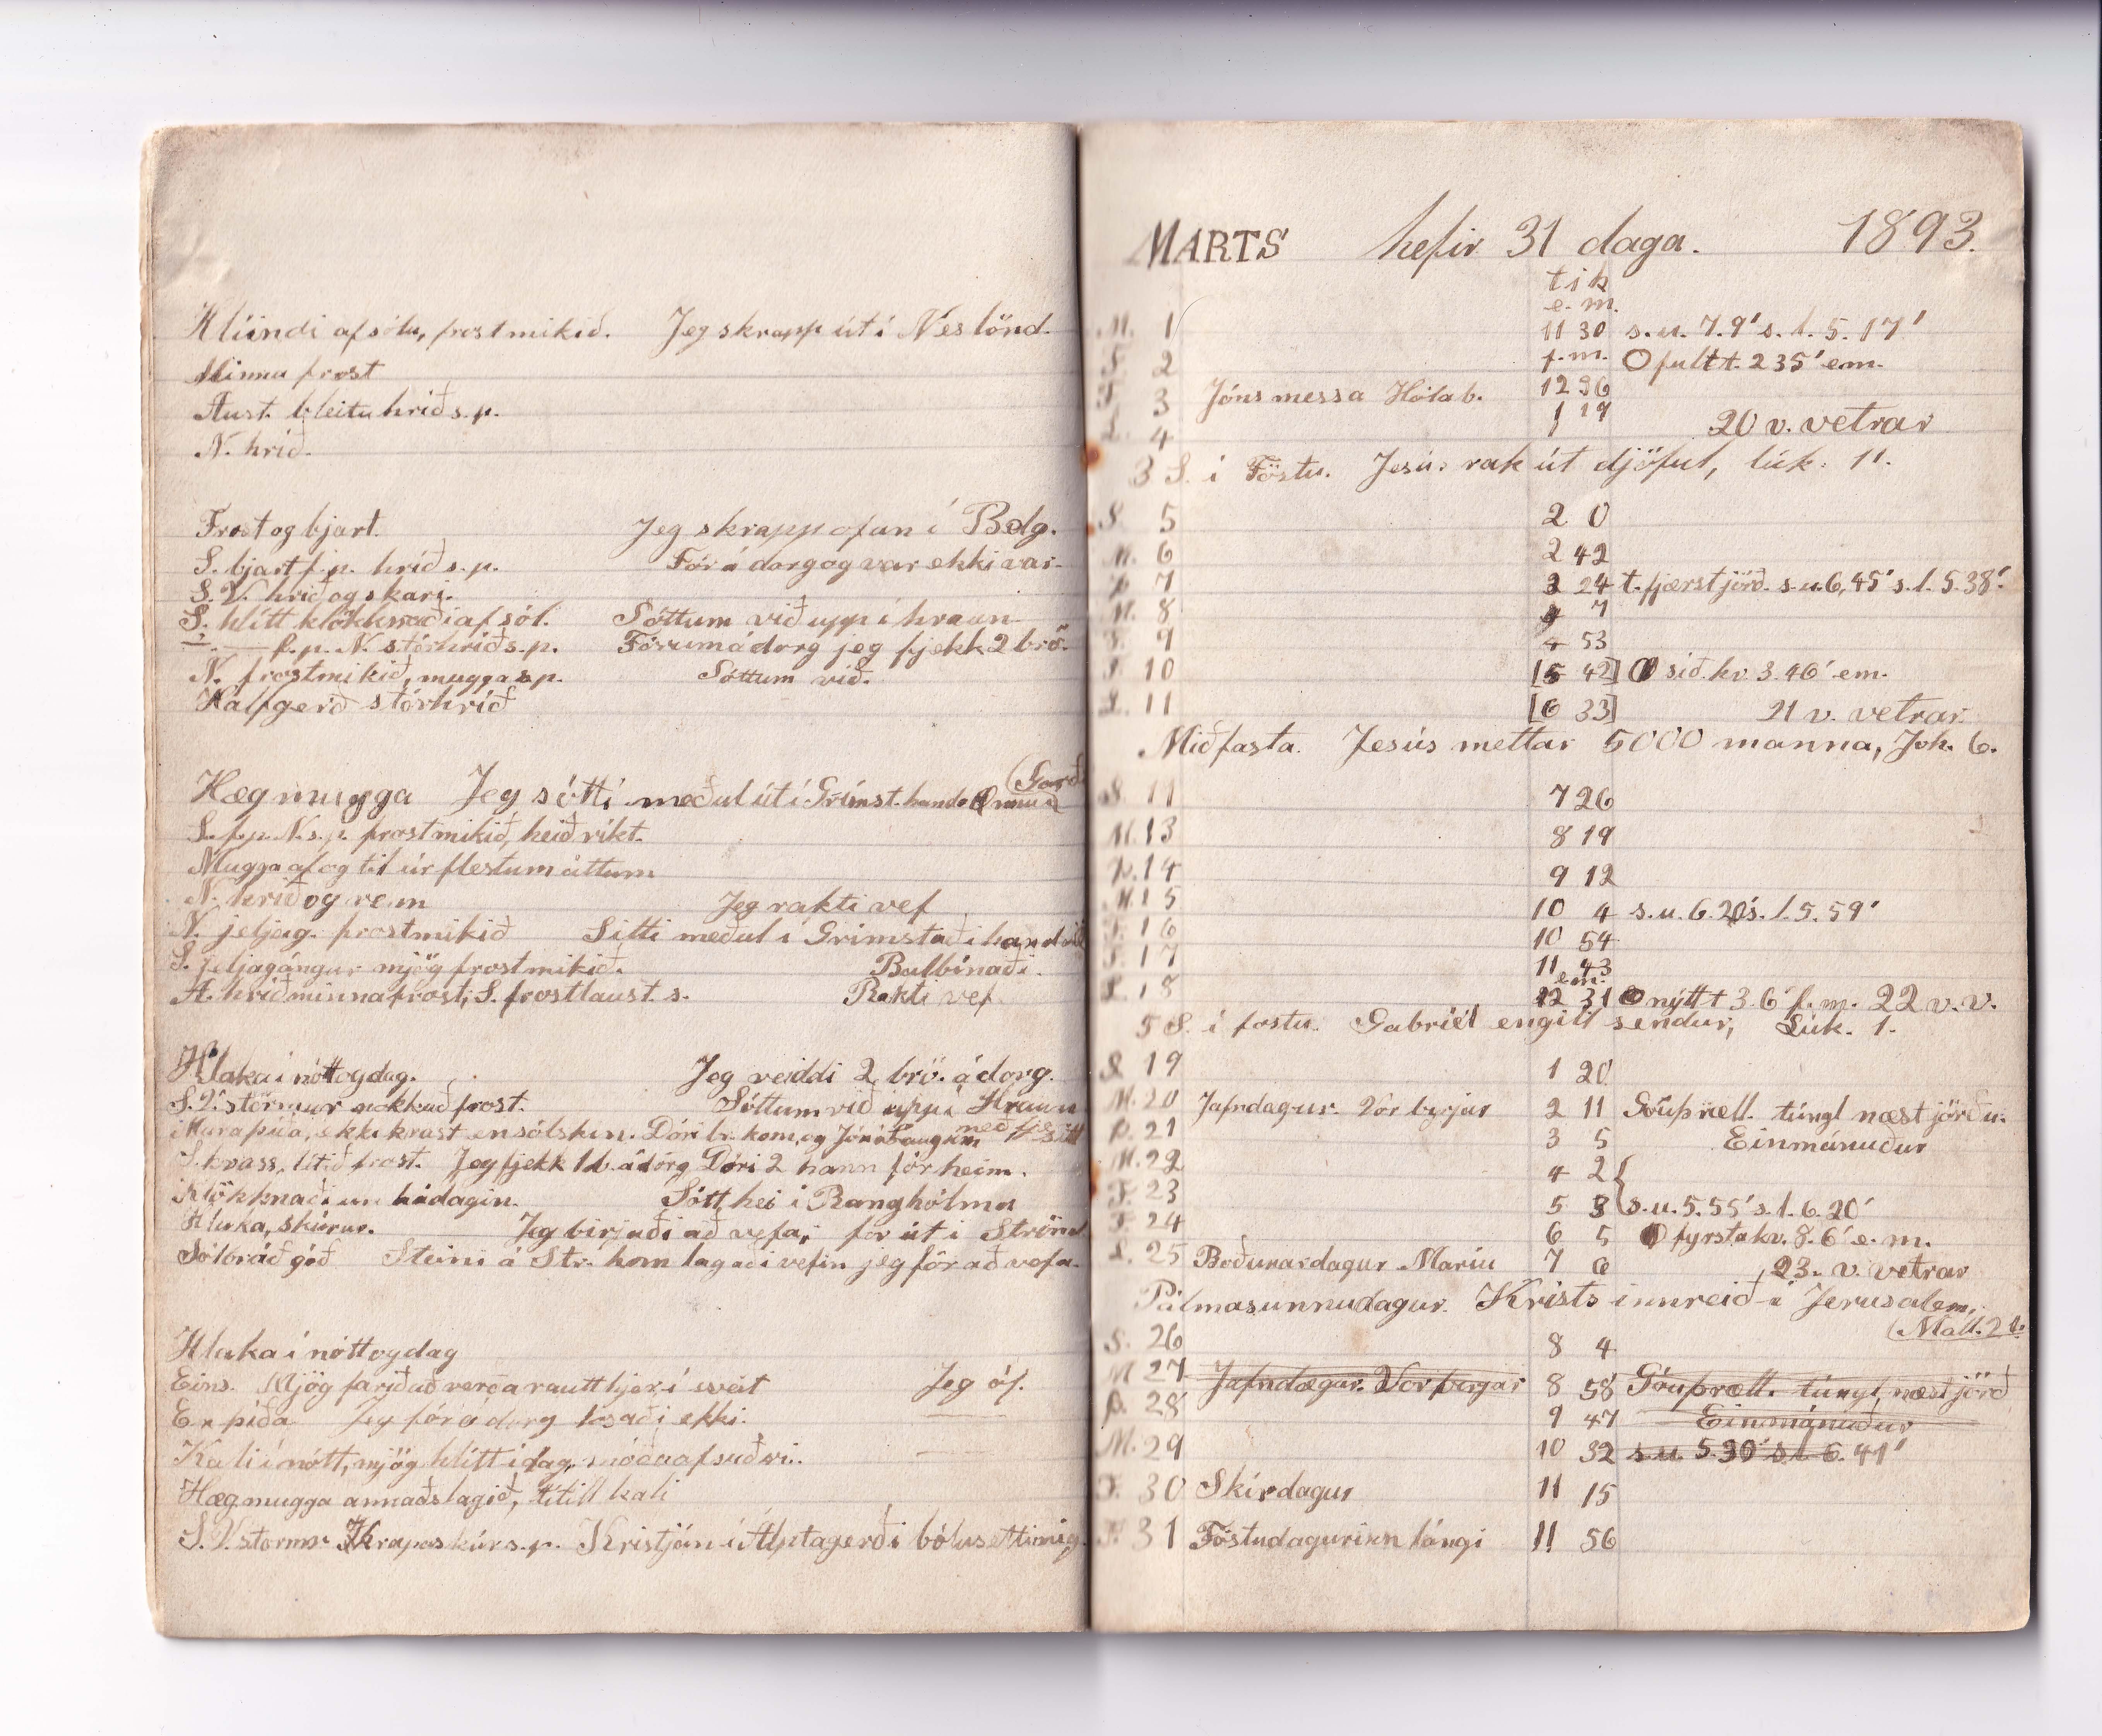 Klíindi af sólu, frost mikið. Jeg skrapp út í Neslönd.
Minna frost
Aust. bleituhríð s.p.
N. hríð.
Frost og bjart. Jeg skrapp ofan í Belg.
S. bjart f.p. hríð s.p. Fór á dorg og var ekki var.
S.V. hríð og skari.
S. hlítt klökknaði af sól. Sóttum við upp í hraun
f.p. N. stórhríð s.p. Fórum á dorg jeg fjekk 2 brö.
N. frostmikið, mugga s.p. Sóttum við.
Hálfgerð stórhríð
(Garð
Hæg mugga Jeg sótti meðul út í Grímst. handa
S. f.p. N. s.p. frostmikið, heiðríkt.
Mugga af og til úr flestum áttum
N. hríð og renn Jeg rakti vef
N. jeljag. frostmikið Sitti meðul í Grímstaði handa
S. jeljagángur mjög frostmikið. Balbínaði.
A. hríð minna frost, S. frostlaust s. Rakti vef.
Hlaka í nótt og dag. Jeg veiddi 2 brö. á dorg.
S.V. stormur nokkuð frost. Sóttum við uppí Hraun
ekki kvast en sólskin. Dóri br. kom, og Jón á
S. kvass, lítið frost. Jeg fjekk 1 b. á dorg Dóri 2 hann fór heim.
Klökknaði um hádagin. Sótt hei í Ranghólma
Hlaka, skúrur. Jeg birjaði að vefa, fór út í Strönd
Sólbráð góð Steini á Str. kom lagaði vefin jeg fór að vefa.
Hlaka í nótt og dag
Eins. Mjög farið að verða rautt hjer í sveit Jeg óf.
En þíða Jeg fór á dorg ekki.
Kali í nótt, mjög hlítt í dag, móða af suðri.
Hæg mugga annaðslagið, títill kali
S.V. stormr Krapaskúr s.p. Kristján í Álptagerði bólusetti mig.
MARTS hefir 31 daga. 1893.
t i k
e. m.
M. 1 11 30 s.u. 7.9' s.l. 5.17'
F. 2 f.m. O fullt t. 2 35' em.
F. 3 Jóns messa Hólab. 12 36
L. 4 1 19 20 v. vetrar
3 S. í Föstu. Jesús rak út djöful, lúk. 11.
S. 5 2 0
M. 6 2 42
Þ. 7 3 24 t. fjærst jörð. s.u. 6,45' s.l. 5.38'.
M. 8 4 7
F. 9 4 53
F. 10 [5 42] síð. kv. 3.46' em.
L. 11 [6 33] 21 v. vetrar
Miðfasta. Jesús mettar 5000 manna, Joh. 6.
S. 11 7 26
M. 13 8 19
Þ. 14 9 12
M. 15 10 4 s.u. 6.20' s.l. 5.59'
F. 16 10 54
F. 17 11 43
e.m.
L. 18 12 31 nýtt t 3.6' f.m. 22 v.v.
5 S. í fostu. Gabríel engill sendur, Lúk. 1.
S. 19 1 20
M. 20 Jafndagur. Vor byrjar 2 11 Góuþræll. túngl næst jörðu.
Þ. 21 3 5 Einmánuður
M. 22 4 2
F. 23 5 3 s.u. 5.55' s.l. 6.20'
F. 24 6 5 fyrsta kv. 8.6' e.m.
L. 25 Boðunardagur Maríu 7 6 23. v. vetrar
Pálmasunnudagur. Krists innreið í Jerusalem,
(Matt. 21.
S. 26 8 4
M 27 Jafndægur. Vor byrjar 8 58 Góuþræll. túngl, næst jörð
Þ. 28 9 47 Einmánuður
M. 29 10 32 s.u. 5.30' s.l. 6.41'
F. 30 Skírdagur 11 15
F. 31 Föstudagurinn lángi 11 56